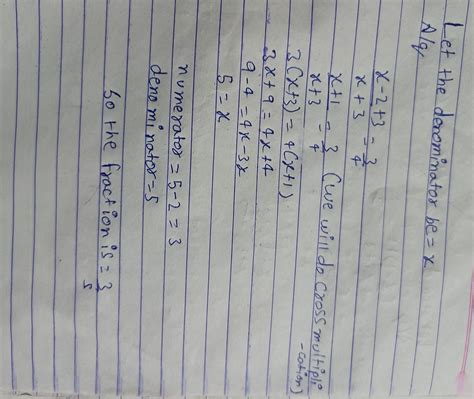 Let the denominator be = x
A/q,
x-2+3 = 3
x+3 4
x+1 = 3 (we will do cross multipli
x+3 4 -cation)
3(x+3) = 4(x+1)
3x+9 = 4x+4
9-4 = 4x-3x
5 = x
numerator = 5-2 = 3
denominator = 5
So the fraction is = 3
5